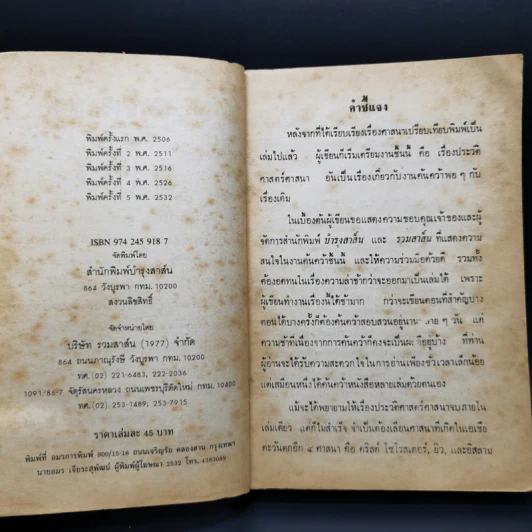 พิมพ์ครั้งแรก พ.ศ. 2506
พิมพ์ครั้งที่ 2 พ.ศ. 2511
พิมพ์ครั้งที่ 3 พ.ศ. 2516
พิมพ์ครั้งที่ 4 พ.ศ. 2526
พิมพ์ครั้งที่ 5 พ.ศ. 2532
ISBN 974 245 918 7
จัดพิมพ์โดย
สำนักพิมพ์บำรุงสาส์น
864 วังบูรพา กทม. 10200
สงวนลิขสิทธิ์
จัดจำหน่ายโดย
บริษัท รวมสาส์น (1977) จำกัด
864 ถนนภาณุรังษี วังบูรพา กทม. 10200
โทร. (02) 221-6483, 222-2036
1091/86-7 จัตุรัสนครหลวง ถนนเพชรบุรีตัดใหม่ กทม. 10400
โทร. (02) 253-1489; 253-7915
ราคาเล่มละ 45 บาท
พิมพ์ที่ อมรการพิมพ์ 800/15-16 ถนนเจริญรัถ คลองสาน กรุงเทพฯ
นายอมร เจียระสุพัฒน์ ผู้พิมพ์ผู้โฆษณา 2532 โทร.
คำชี้แจง
หลังจากที่ได้เรียบเรียงเรื่องศาสนาเปรียบเทียบพิมพ์เป็น
เล่มไปแล้ว ผู้เขียนก็เริ่มเตรียมงานชิ้นนี้ คือ เรื่องประวัติ
ศาสตร์ศาสนา อันเป็นเรื่องเกี่ยวกับงานค้นคว้าพอ ๆ กับ
เรื่องเดิม
ในเบื้องต้นผู้เขียนขอแสดงความขอบคุณเจ้าของและผู้
จัดการสำนักพิมพ์ บำรุงสาส์น และ รวมสาส์น ที่แสดงความ
สนใจในงานค้นคว้าชิ้นนี้ และให้ความร่วมมือด้วยดี รวมทั้ง
ต้องอดทนในเรื่องความล่าช้ากว่าจะออกมาเป็นเล่มได้ เพราะ
ผู้เขียนทำงานเรื่องนี้ได้ช้ามาก กว่าจะเขียนตอนที่สำคัญบาง
ตอนได้บางครั้งก็ต้องค้นคว้าสอบสวนอยู่นาน ๆ วัน แต่
ความช้าที่เนื่องจากการค้นคว้าก็คงจะเป็นผลดีอยู่บ้าง ที่ท่าน
ผู้อ่านจะได้รับความสะดวกใจในการอ่านเพียงชั่วเวลาเล็กน้อย
แต่เสมือนหนึ่งได้ค้นคว้าหนังสือหลายเล่มด้วยตนเอง
แม้จะได้พยายามให้เรื่องประวัติศาสตร์ศาสนาจบภายใน
เล่มเดียว แต่ก็ไม่สำเร็จ จำเป็นต้องเลื่อนศาสนาที่เกิดในเอเซีย
ตะวันตกอีก ๔ ศาสนา คือ คริสต์ โซโรสเตอร์, ยิว, และอิสลาม